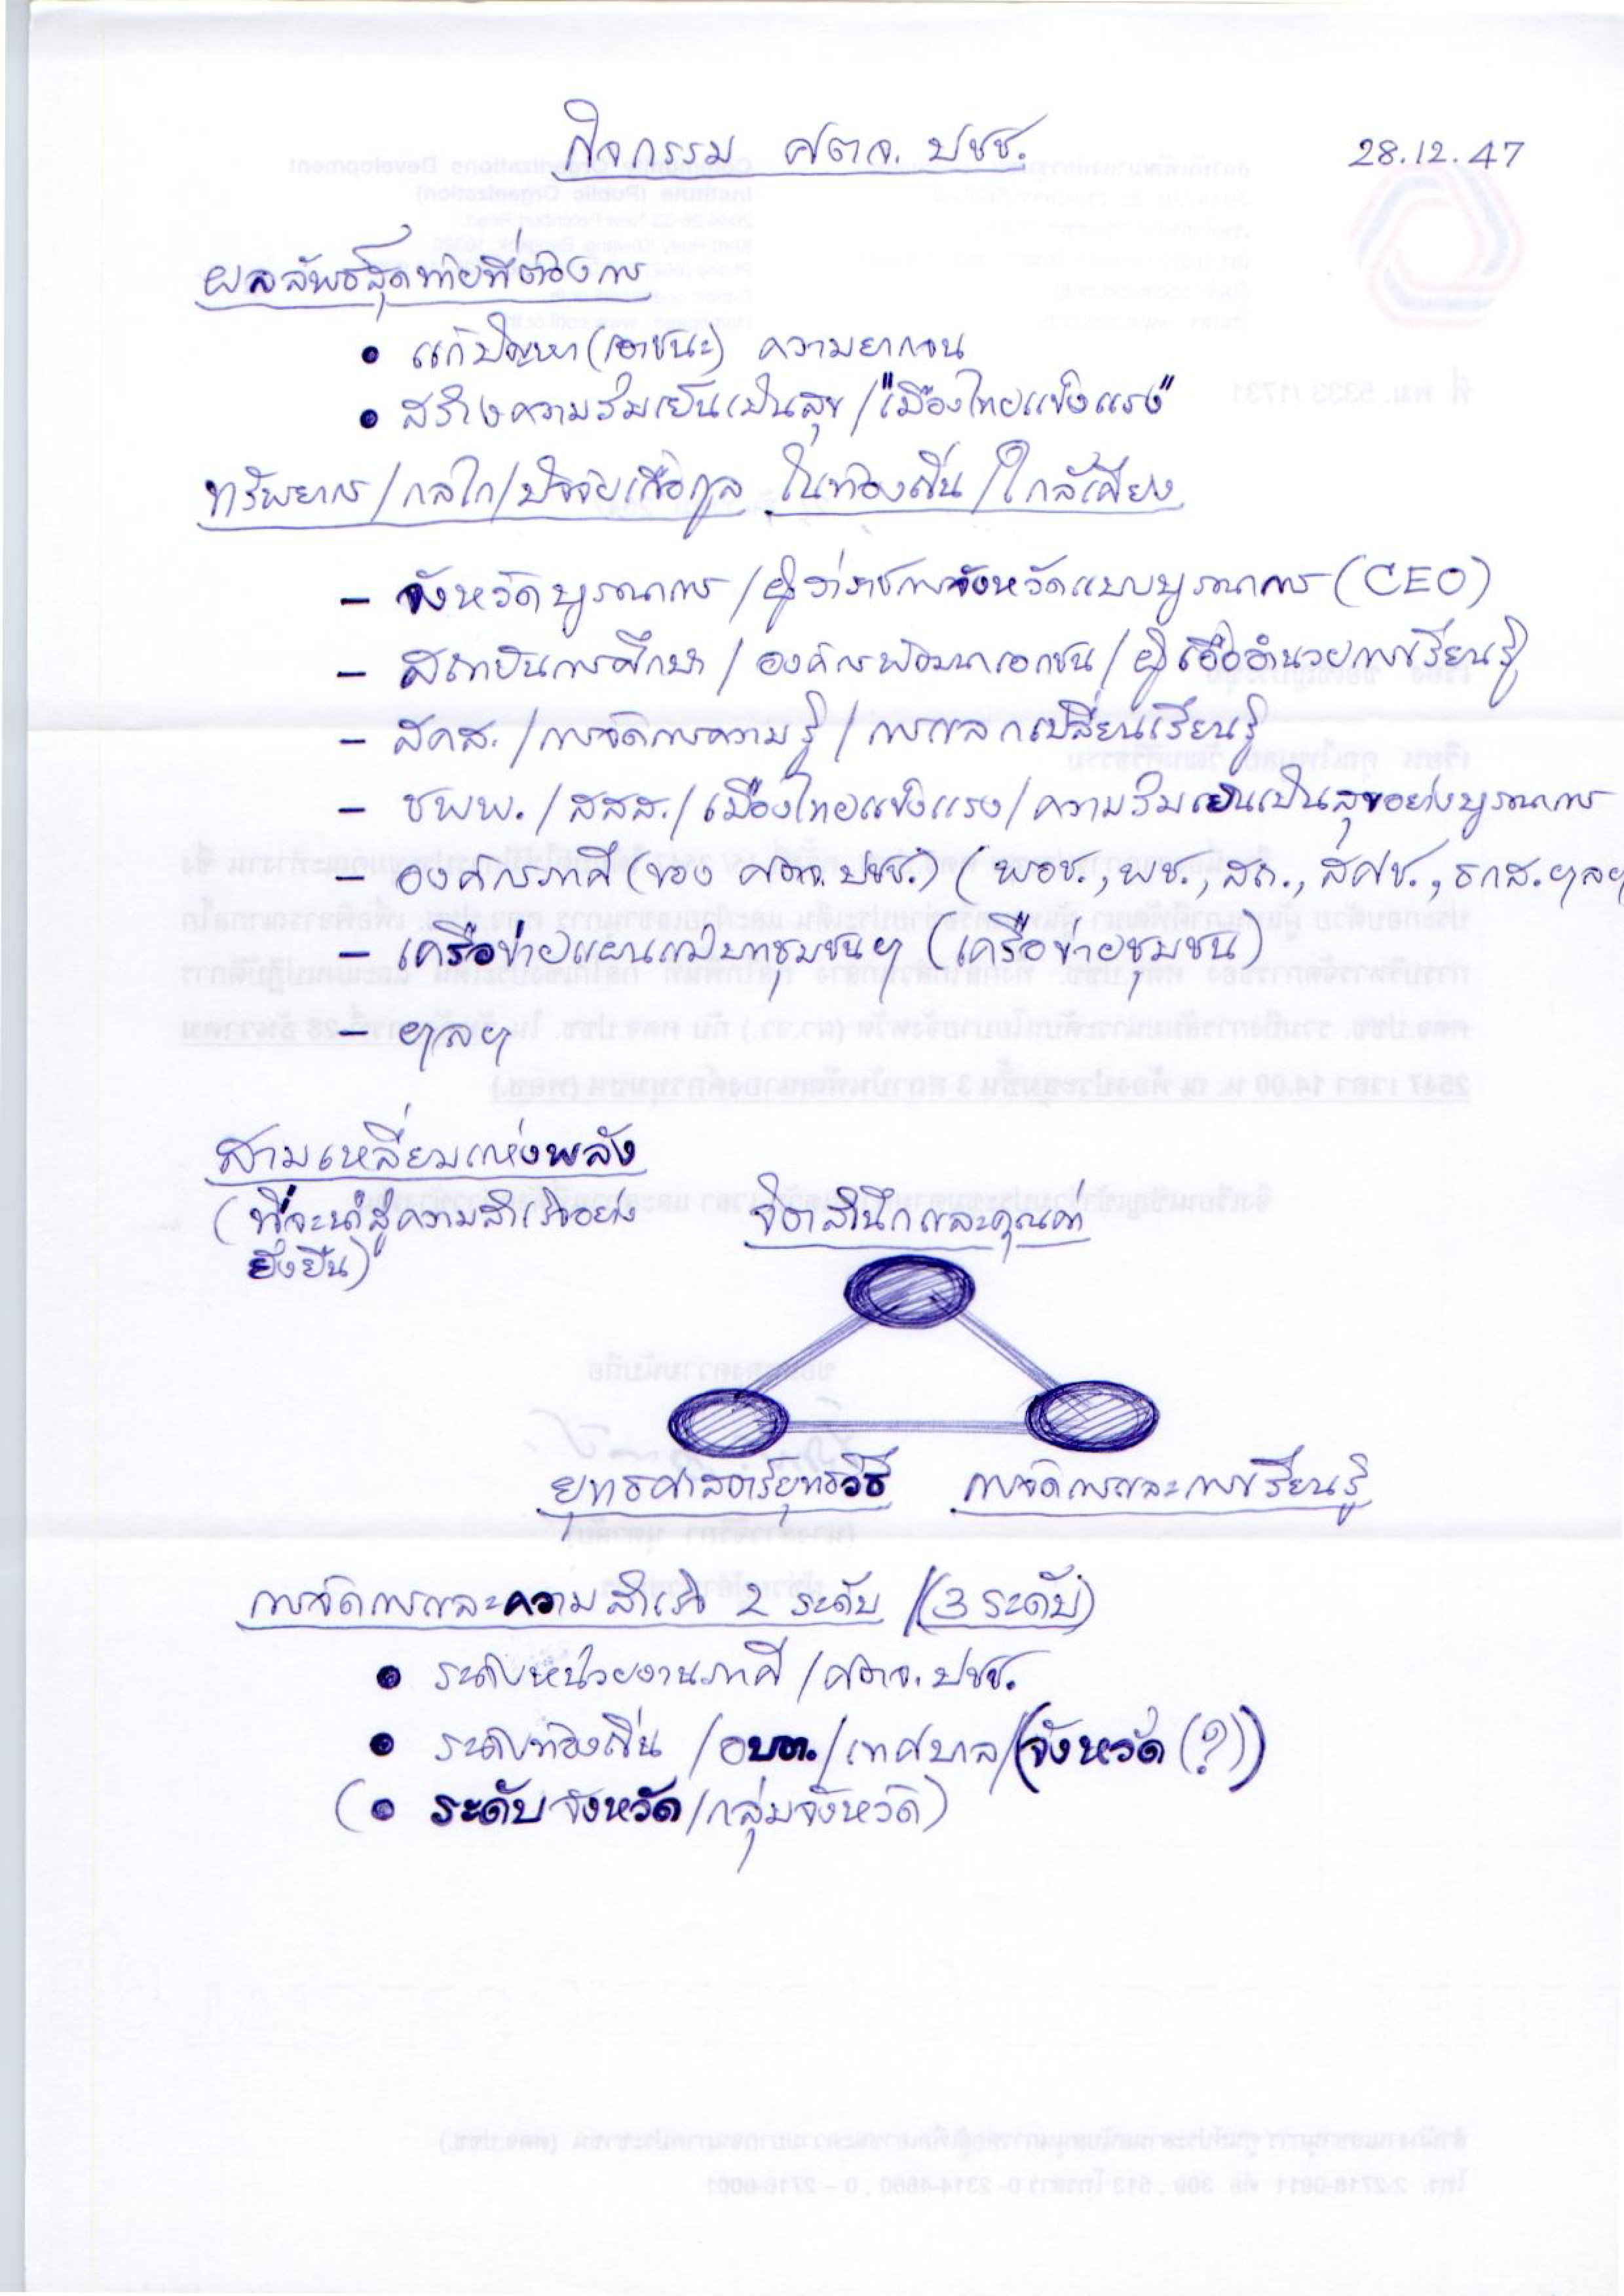 กิจกรรม ศตจ. ปชช. 28.12.47
ผลลัพธ์สุดท้ายที่ต้องการ
• แก้ปัญหา (เอาชนะ) ความยากจน
• สร้างความร่มเย็นเป็นสุข / "เมืองไทยแข็งแรง"
ทรัพยากร / กลไก / ปัจจัยเกื้อกูล ในท้องถิ่น / ใกล้เคียง
– จังหวัดบูรณาการ / ผู้ว่าราชการจังหวัดแบบบูรณาการ (CEO)
– สถาบันการศึกษา / องค์กรพัฒนาเอกชน / ผู้เอื้ออำนวยการเรียนรู้
– สคส. / การจัดการความรู้ / การแลกเปลี่ยนเรียนรู้
– ชพพ. / สสส. / เมืองไทยแข็งแรง / ความร่มเย็นเป็นสุขอย่างบูรณาการ
– องค์กรภาคี (ของ ศตจ. ปชช.) (พอช., พช., สถ., สศช., ธกส. ฯลฯ
– เครือข่ายแผนแม่บทชุมชนฯ (เครือข่ายชุมชน)
– ฯลฯ
สามเหลี่ยมแห่งพลัง
(ที่จะนำสู่ความสำเร็จอย่าง
ยั่งยืน)
จิตสำนึกและคุณค่า
ยุทธศาสตร์ยุทธวิธี การจัดการและการเรียนรู้
การจัดการและความสำเร็จ 2 ระดับ / (3 ระดับ)
• ระดับหน่วยงานภาคี / ศตจ. ปชช.
• ระดับท้องถิ่น / อบต. / เทศบาล / (จังหวัด (?))
(• ระดับจังหวัด / กลุ่มจังหวัด)